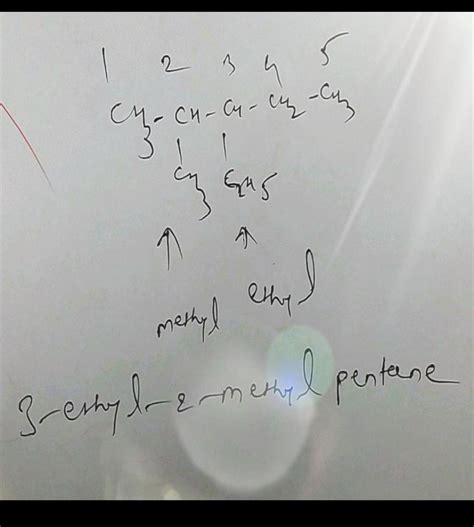 1 2 3 4 5
CH3-CH-CH-CH2-CH3
| |
CH3 C2H5
↑ ↑
methyl ethyl
3-ethyl-2-methyl pentane